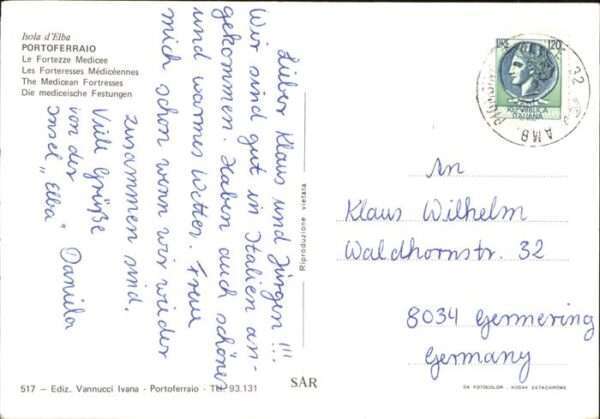 Isola d'Elba
PORTOFERRAIO
Le Fortezze Medicee
Les Forteresses Médicéennes
The Medicean Fortresses
Die mediceische Festungen
Lieber Klaus und Jürgen!!!
Wir sind gut in Italien an-
gekommen. Haben auch schönes
und warmes Wetter. Freue
mich schon wenn wir wieder
zusammen sind.
Viele Grüße
von der
Insel „Elba"
Daniela
Riproduzione vietata
LIRE 120
REPUBBLICA
ITALIANA
32
AMB.
An
Klaus Wilhelm
Waldhornstr. 32
8034 Germering
Germany
517 - Ediz. Vannucci Ivana - Portoferraio - Tel. 93.131
SAR
FOTOCOLOR - KODAK EKTACHROME